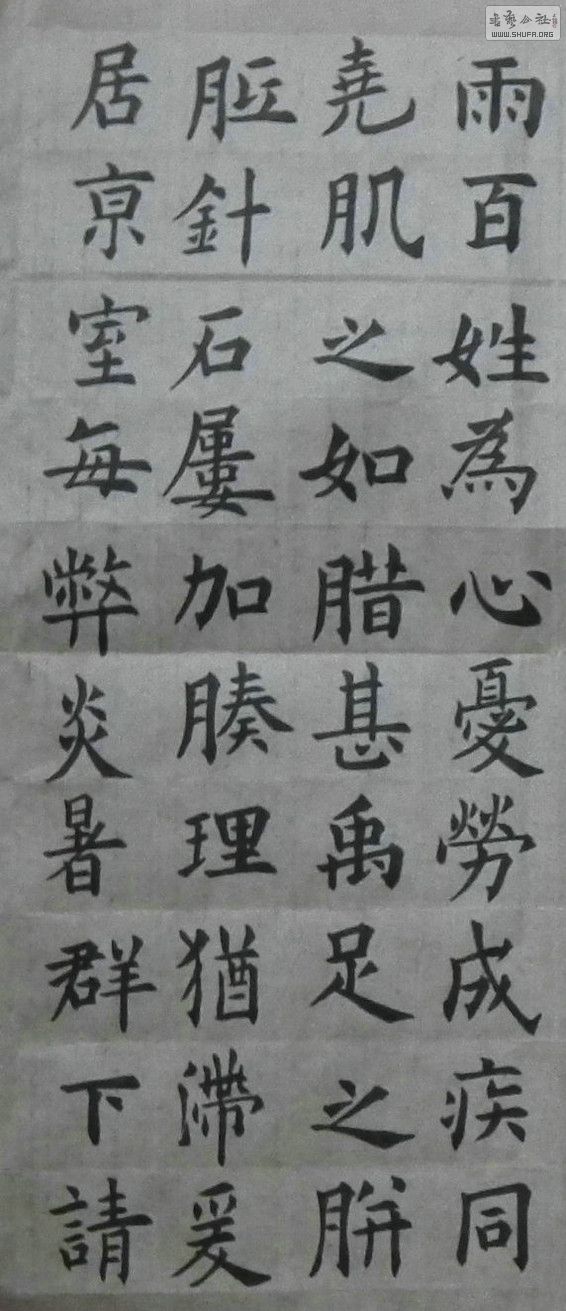 雨百姓為心憂勞成疾同
堯肌之如腊甚禹足之胼
胝針石屢加腠理猶滯爰
居京室每弊炎暑群下請
WWW.SHUFA.ORG